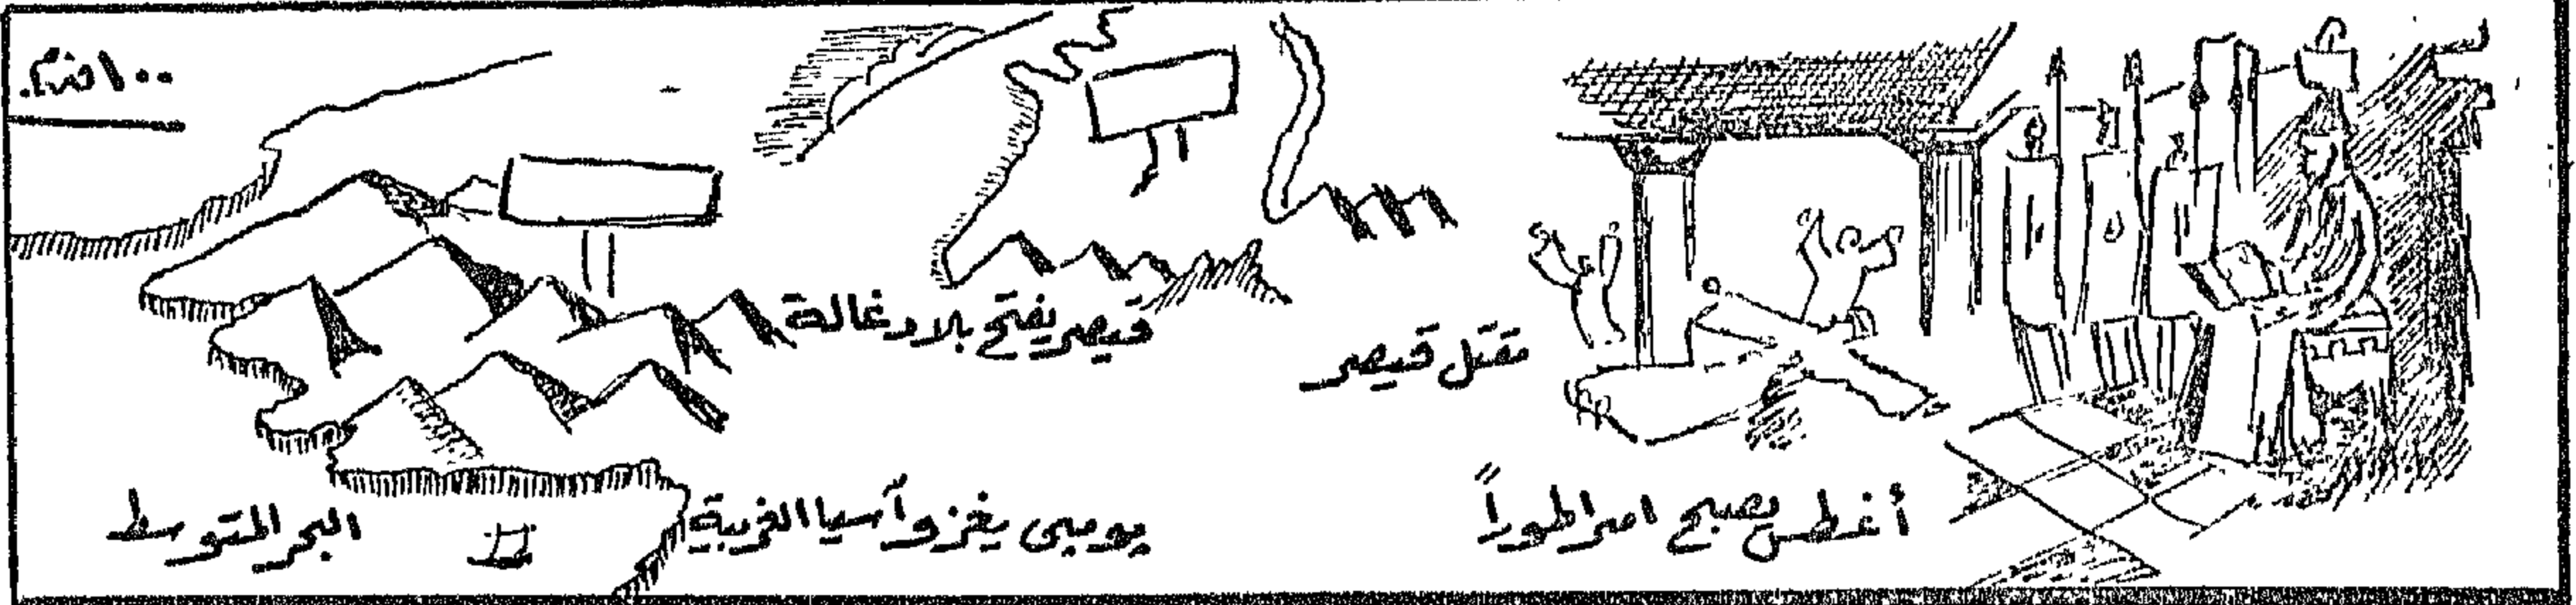 ١٠٠ ق.م.
قيصر يفتح بلاد غالة
مقتل قيصر
البحر المتوسط
يومبى يغزو آسيا الغربية
أغطس يصبح امبراطوراً